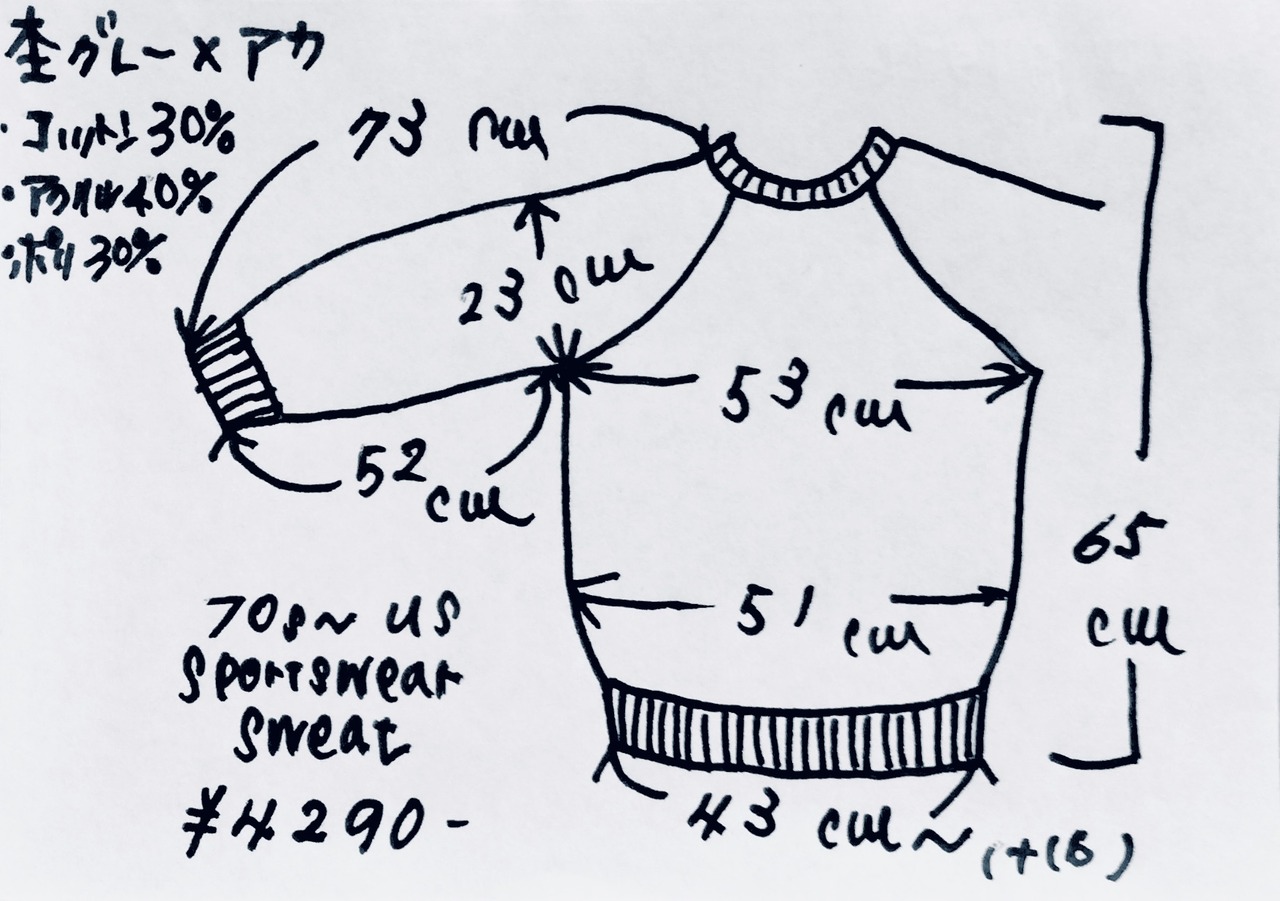 杢グレー×アカ
・コットン30%
・アクリル40%
・ポリ30%
73 cm
23 cm
53 cm
52 cm
51 cm
65 cm
43 cm~(+16)
70s~ US
sportswear
sweat
¥4290-